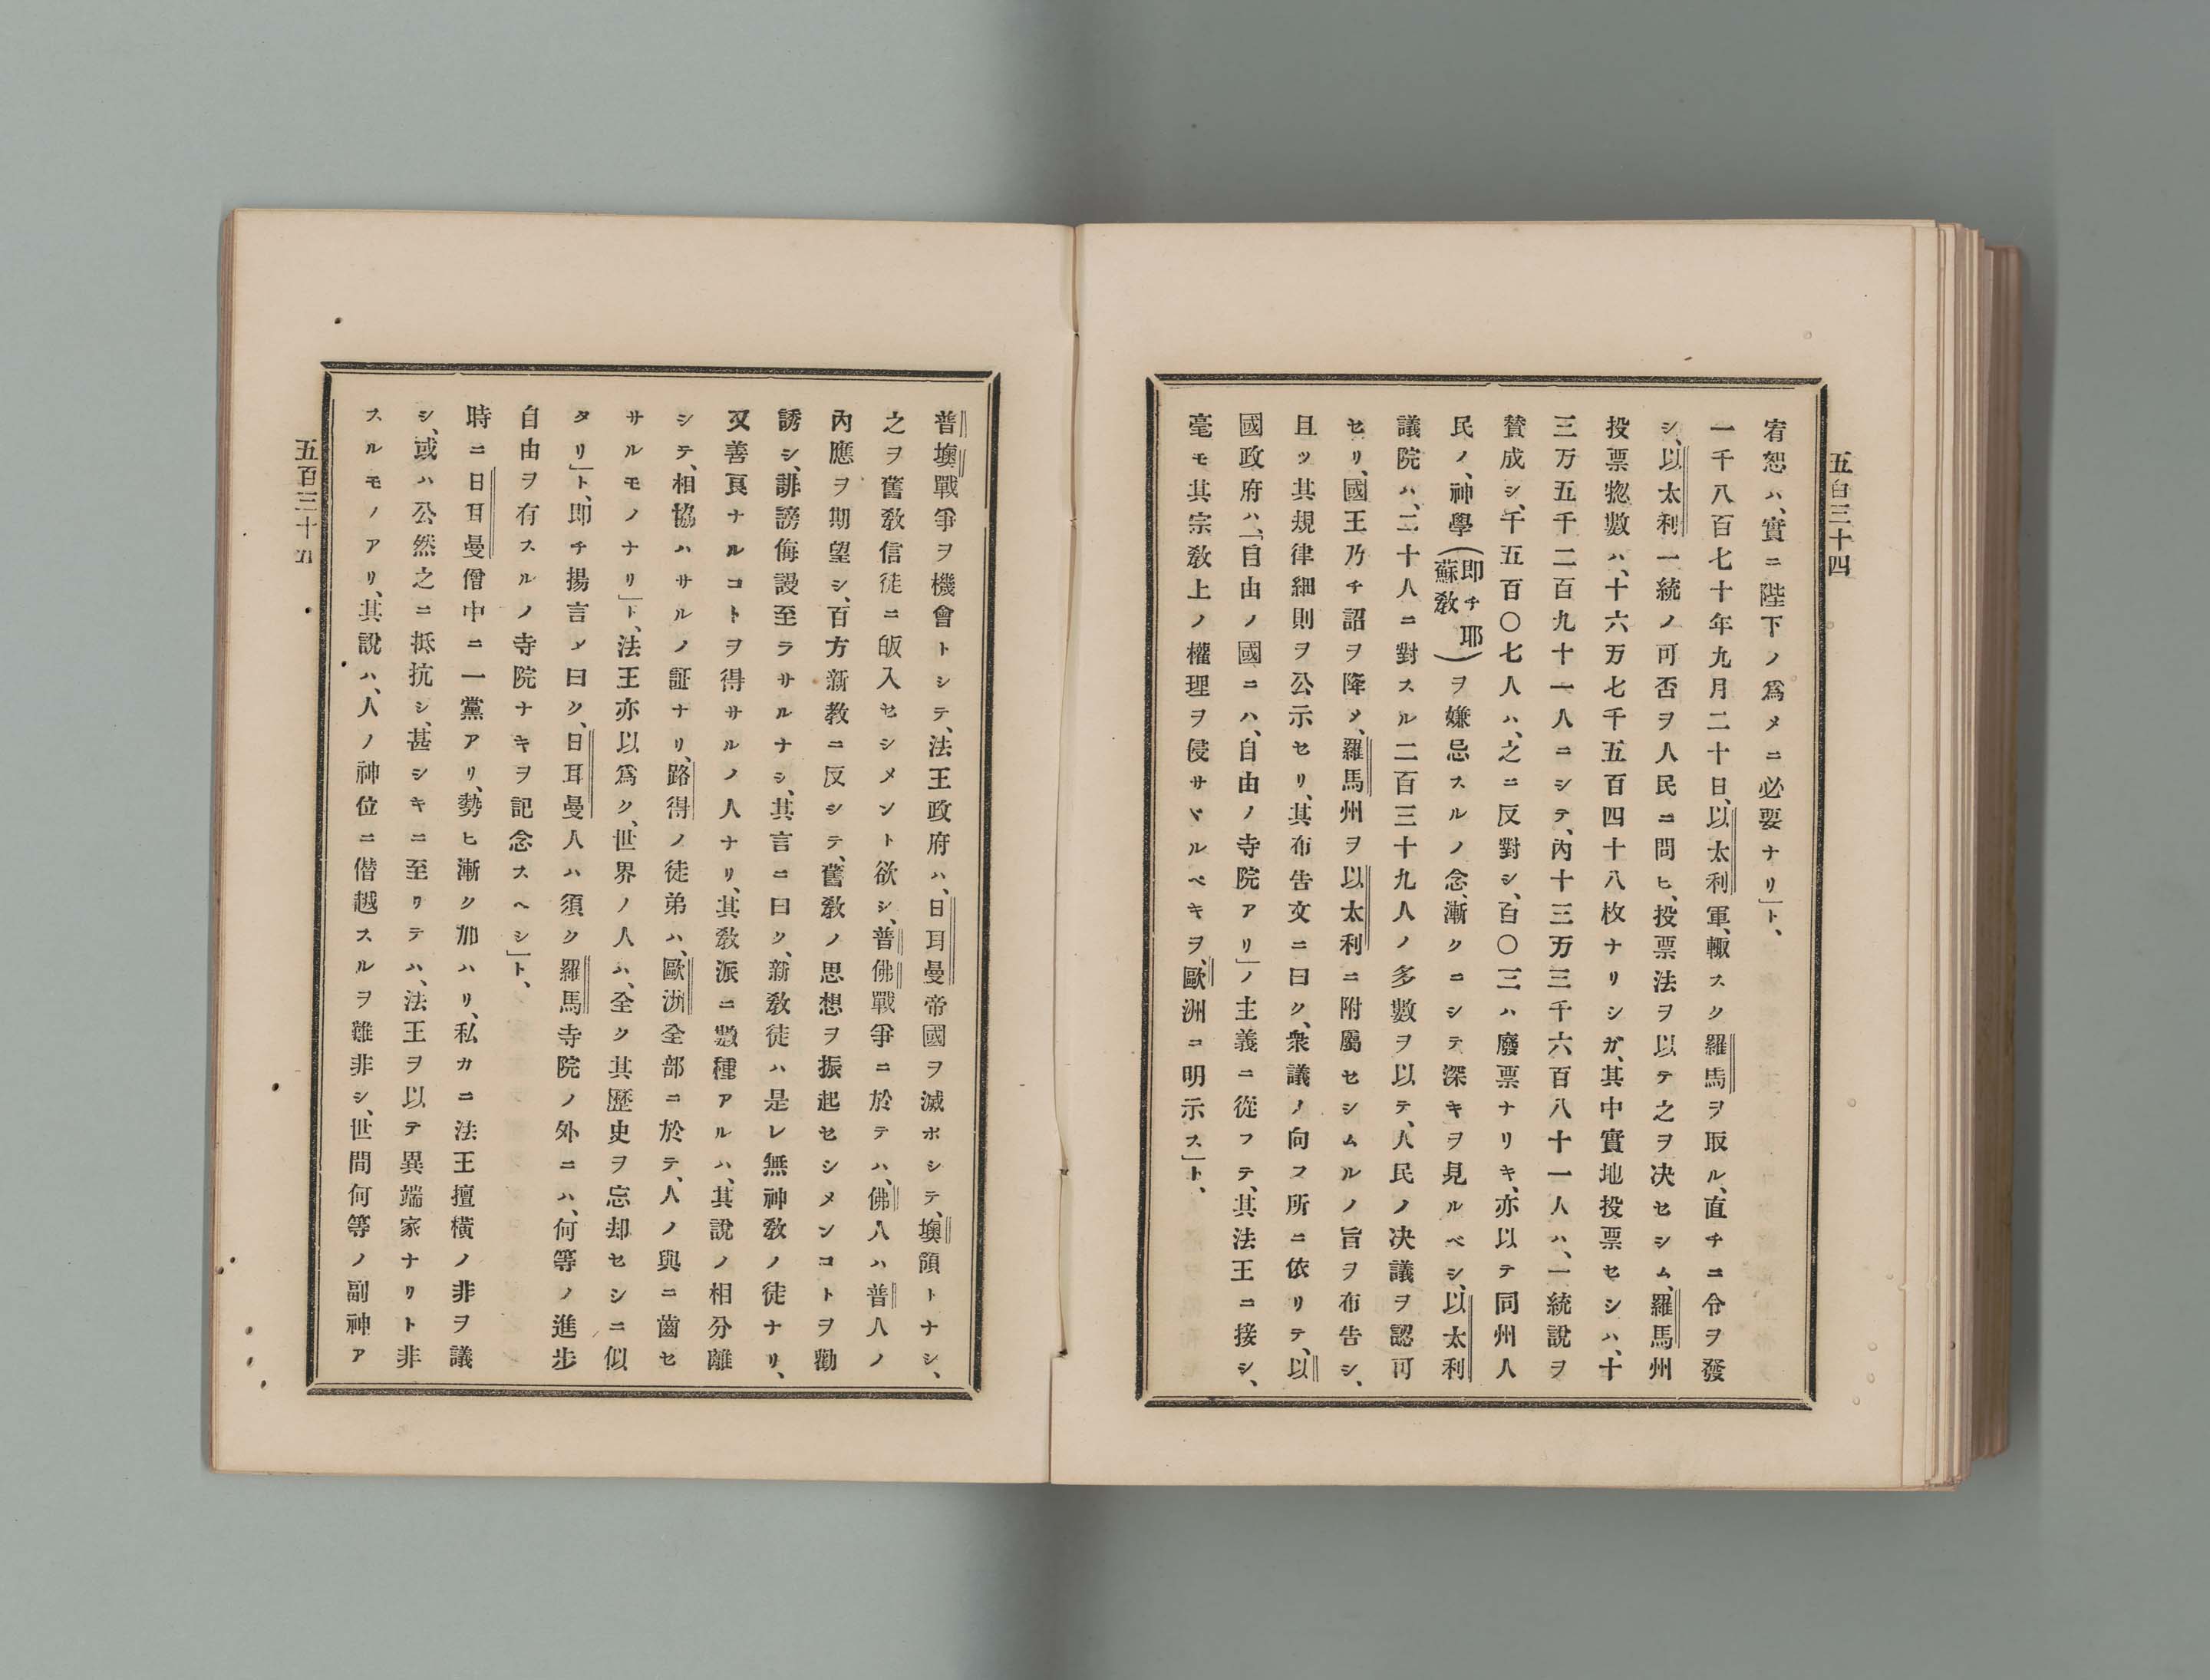 五百三十四
宥恕ハ、實ニ陛下ノ爲メニ必要ナリ」ト、
一千八百七十年九月二十日、以太利軍、輙スク羅馬ヲ取ル、直チニ令ヲ發
シ、以太利一統ノ可否ヲ人民ニ問ヒ、投票法ヲ以テ之ヲ决セシム、羅馬州
投票惣數ハ、十六万七千五百四十八枚ナリシガ、其中實地投票セシハ、十
三万五千二百九十一人ニシテ、內十三万三千六百八十一人ハ、一統說ヲ
賛成シ、千五百〇七人ハ、之ニ反對シ、百〇三ハ廢票ナリキ、亦以テ同州人
民ノ、神學(即チ耶蘇敎)ヲ嫌忌スルノ念、漸クニシテ深キヲ見ルベシ、以太利
議院ハ、二十八ニ對スル二百三十九人ノ多數ヲ以テ、人民ノ决議ヲ認可
セリ、國王乃チ詔ヲ降メ、羅馬州ヲ以太利ニ附屬セシムルノ旨ヲ布告シ、
且ツ其規律細則ヲ公示セリ、其布告文ニ曰ク、衆議ノ向フ所ニ依リテ、以
國政府ハ、「自由ノ國ニハ、自由ノ寺院アリ」ノ主義ニ從フテ、其法王ニ接シ、
毫モ其宗敎上ノ權理ヲ侵サヾルベキヲ、歐洲ニ明示ス」ト、
普墺戰爭ヲ機會トシテ、法王政府ハ、日耳曼帝國ヲ滅ボシテ、墺領トナシ、
之ヲ舊敎信徒ニ皈入セシメント欲シ、普佛戰爭ニ於テハ、佛人ハ普人ノ
內應ヲ期望シ、百方新敎ニ反シテ、舊敎ノ思想ヲ振起セシメンコトヲ勸
誘シ、誹謗侮謾至ラサルナシ、其言ニ曰ク、新敎徒ハ是レ無神敎ノ徒ナリ、
又善良ナルコトヲ得サルノ人ナリ、其敎派ニ數種アルハ、其說ノ相分離
シテ、相協ハサルノ証ナリ、路得ノ徒弟ハ、歐洲全部ニ於テ、人ノ與ニ齒セ
サルモノナリ」ト、法王亦以爲ク、世界ノ人ハ、全ク其歷史ヲ忘却セシニ似
タリ」ト、即チ揚言メ曰ク、日耳曼人ハ須ク羅馬寺院ノ外ニハ、何等ノ進步
自由ヲ有スルノ寺院ナキヲ記念スヘシ」ト、
時ニ日耳曼僧中ニ一黨アリ、勢ヒ漸ク加ハリ、私カニ法王擅橫ノ非ヲ議
シ、或ハ公然之ニ抵抗シ、甚シキニ至リテハ、法王ヲ以テ異端家ナリト非
スルモノアリ、其說ハ、人ノ神位ニ僭越スルヲ難非シ、世間何等ノ副神ア
五百三十五